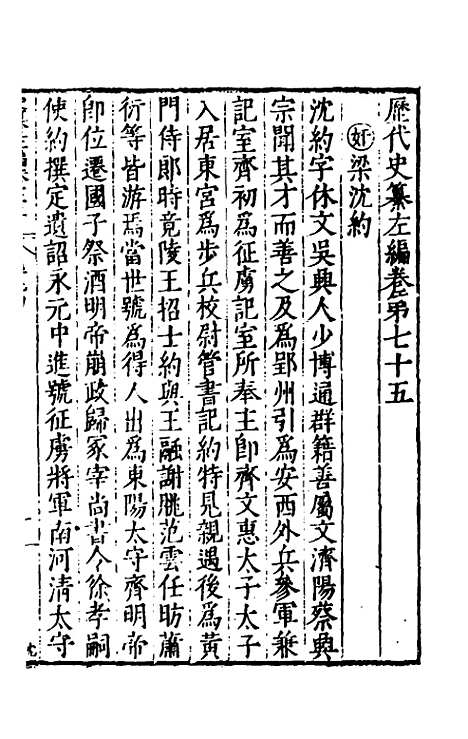 歷代史纂左編卷第七十五
奸梁沈約
沈約字休文吳興人少博通群籍善屬文濟陽蔡興
宗聞其才而善之及為郢州引為安西外兵參軍兼
記室齊初為征虜記室所奉主即齊文惠太子太子
入居東宮為步兵校尉管書記約特見親遇後為黃
門侍郎時竟陵王招士約與王融謝朓范雲任昉蕭
衍等皆游焉當世號為得人出為東陽太守齊明帝
即位遷國子祭酒明帝崩政歸冢宰尚書令徐孝嗣
使約撰定遺詔永元中進號征虜將軍南河清太守